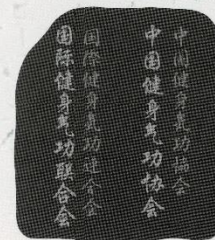 中国健身氣功協会
中国健身气功协会
国際健身氣功連合会
国际健身气功联合会